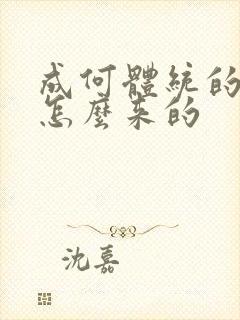 成何體統的
怎麼來的
沈嘉